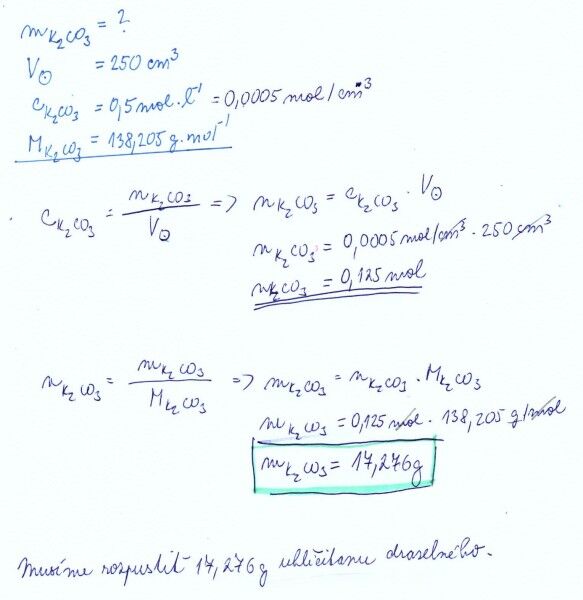 m K₂CO₃ = ?
V⊙ = 250 cm³
c K₂CO₃ = 0,5 mol · l⁻¹ = 0,0005 mol / cm³
M K₂CO₃ = 138,205 g · mol⁻¹
c K₂CO₃ = n K₂CO₃ / V⊙ => n K₂CO₃ = c K₂CO₃ · V⊙
n K₂CO₃ = 0,0005 mol/cm³ · 250 cm³
n K₂CO₃ = 0,125 mol
n K₂CO₃ = m K₂CO₃ / M K₂CO₃ => m K₂CO₃ = n K₂CO₃ · M K₂CO₃
m K₂CO₃ = 0,125 mol · 138,205 g/mol
m K₂CO₃ = 17,276g
Musíme rozpustit 17,276g uhličitanu draselného.